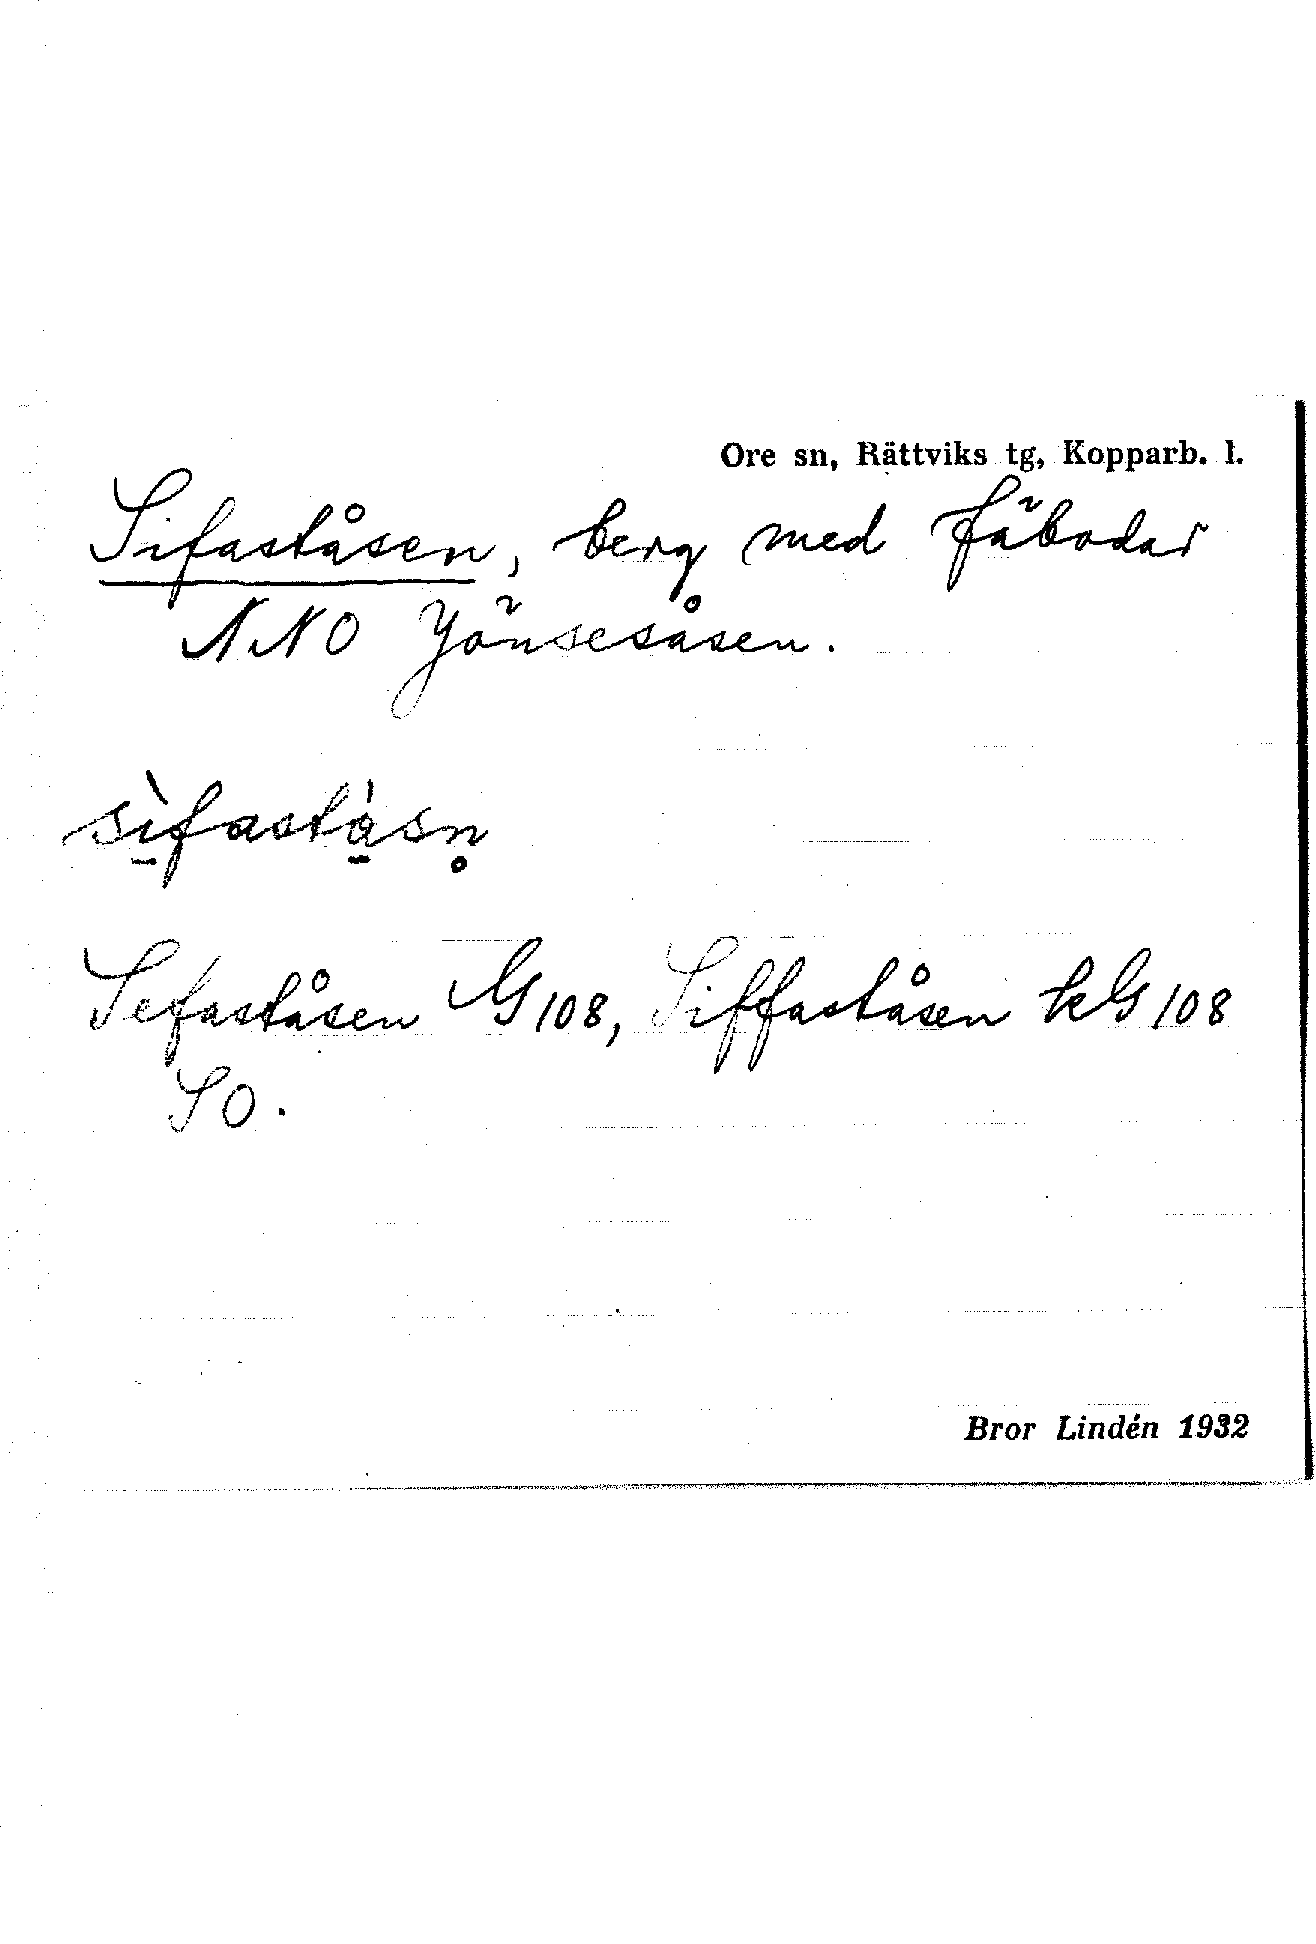 Ore sn, Rättviks tg, Kopparb. l.
Sifaståsen, berg med fäbodar
NNO Jönsesåsen.
sìfastàsn̥
Sefaståsen G 108, Siffaståsen kG 108
SO.
Bror Lindén 1932